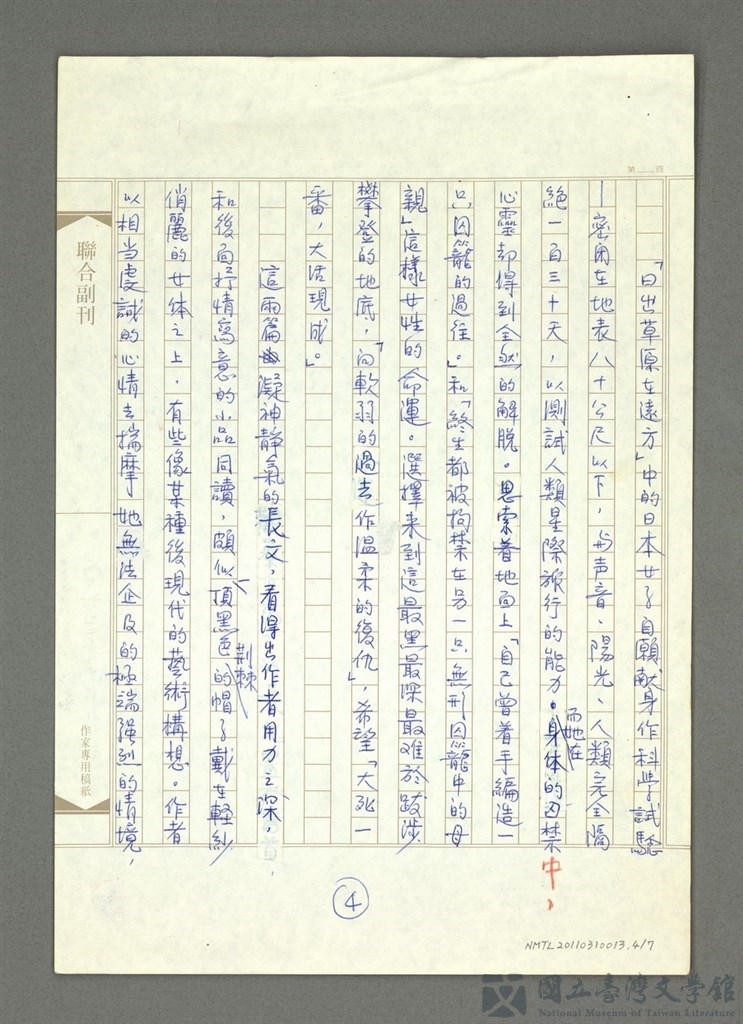 第　頁
「日出草原在遠方」中的日本女子自願献身作科學試驗
—密閉在地表八十公尺以下，与声音、陽光、人類完全隔
絕一百三十天，以測試人類星際旅行的能力。而她在身体的囚禁中，
心靈却得到全然的解脫。思索着地面上「自己曾着手編造一
只囚籠的過往。」和「終生都被拘禁在另一只無形囚籠中的母
親」這樣女性的命運。選擇来到這最黑最深最難於跋涉
攀登的地底，「向軟弱的過去作溫柔的復仇」，希望「大死一
番，大活現成。」
這兩篇凝神靜氣的長文，看得出作者用力之深，
和後面抒情寫意的小品同讀，頗似頂黑色荊棘的帽子戴在輕紗
俏麗的女体之上，有些像某種後現代的藝術構想。作者
以相当虔誠的心情去揣摩她無法企及的極端强烈的情境，
聯合副刊
作家專用稿紙
④
NMTL20110310013.4/7
國立臺灣文學館
National Museum of Taiwan Literature